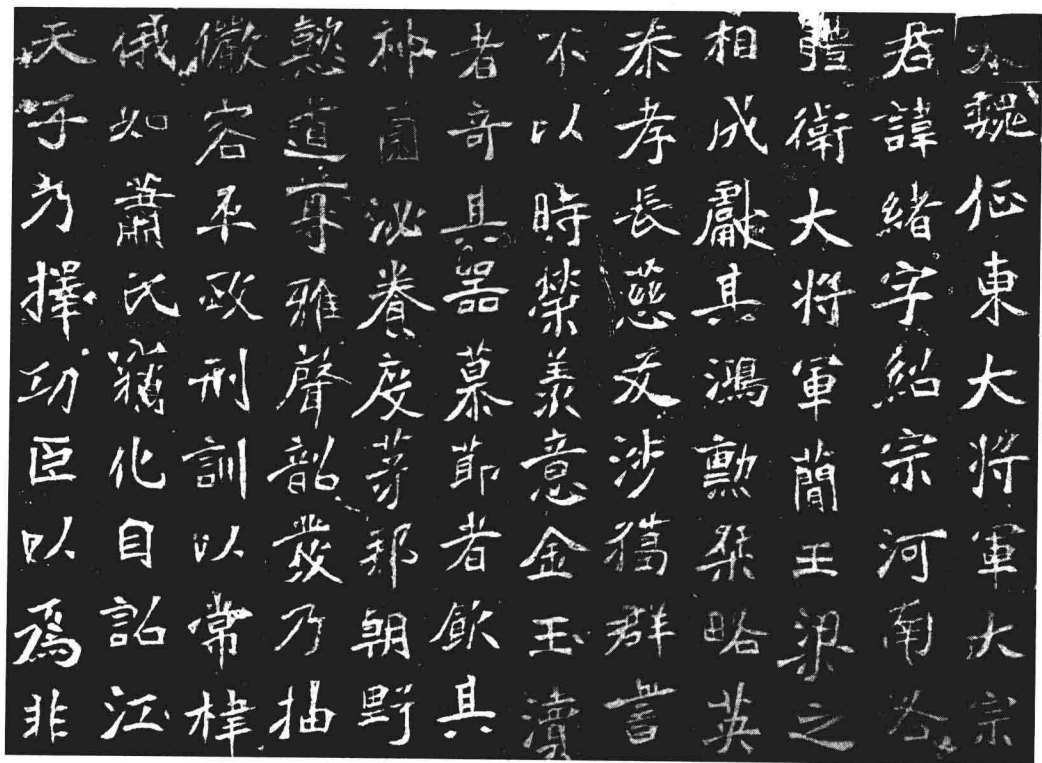 大魏征東大將軍大宗
君諱緒字紹宗河南洛
體衛大將軍簡王梁之
相成獻其鴻勳桀略英
恭孝長慈友涉獦群書
不以時榮羡意金玉瀆
者奇其器慕節者飲其
神園泌養度茅邦朝野
懿道尊雅聲韶發乃抽
儼容平政刑訓以常椲
俄如蕭氏竊化自詔江
天子乃擇功臣以為非